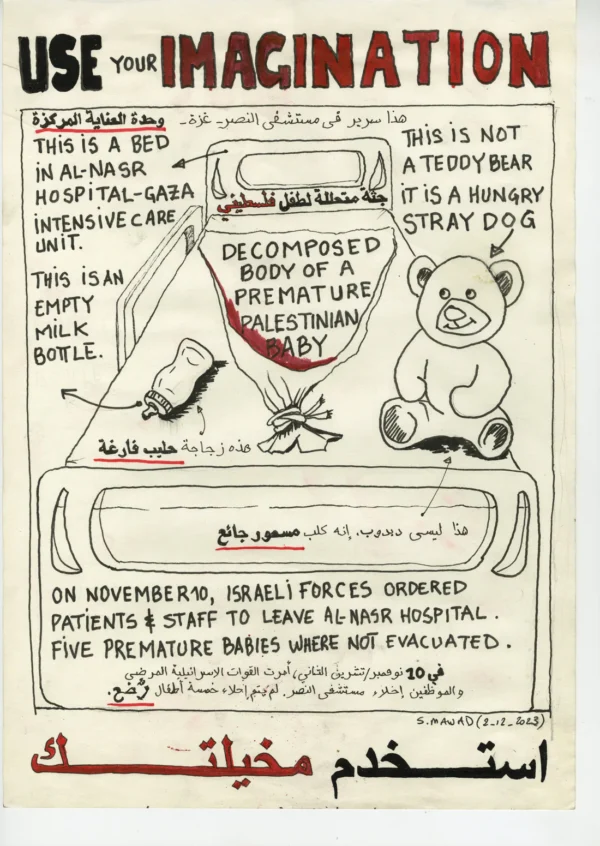 USE YOUR IMAGINATION
وحدة العناية المركزة
هذا سرير في مستشفى النصر - غزة -
THIS IS A BED
IN AL-NASR
HOSPITAL-GAZA
INTENSIVE CARE
UNIT.
THIS IS NOT
A TEDDY BEAR
IT IS A HUNGRY
STRAY DOG
جثة متحللة لطفل فلسطيني
DECOMPOSED
BODY OF A
PREMATURE
PALESTINIAN
BABY
THIS IS AN
EMPTY
MILK
BOTTLE.
هذه زجاجة حليب فارغة
هذا ليس دبدوب. إنه كلب مسعور جائع
ON NOVEMBER 10, ISRAELI FORCES ORDERED
PATIENTS & STAFF TO LEAVE AL-NASR HOSPITAL.
FIVE PREMATURE BABIES WHERE NOT EVACUATED.
في 10 نوفمبر/تشرين الثاني، أمرت القوات الإسرائيلية المرضى
والموظفين إخلاء مستشفى النصر. لم يتم إجلاء خمسة أطفال رُضع.
S. MAWAD (2-12-2023)
استخدم مخيلتك